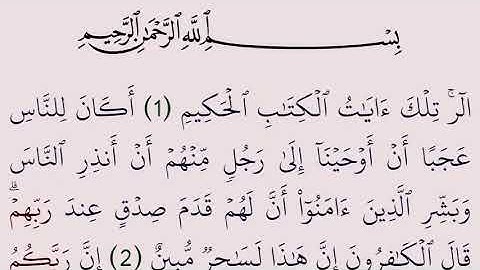 بِسْمِ اللَّهِ الرَّحْمَٰنِ الرَّحِيمِ
الٓرۚ تِلْكَ ءَايَٰتُ ٱلْكِتَٰبِ ٱلْحَكِيمِ (1) أَكَانَ لِلنَّاسِ
عَجَبًا أَنْ أَوْحَيْنَآ إِلَىٰ رَجُلٍ مِّنْهُمْ أَنْ أَنذِرِ ٱلنَّاسَ
وَبَشِّرِ ٱلَّذِينَ ءَامَنُوٓاْ أَنَّ لَهُمْ قَدَمَ صِدْقٍ عِندَ رَبِّهِمْۗ
قَالَ ٱلْكَٰفِرُونَ إِنَّ هَٰذَا لَسَٰحِرٌ مُّبِينٌ (2) إِنَّ رَبَّكُمُ